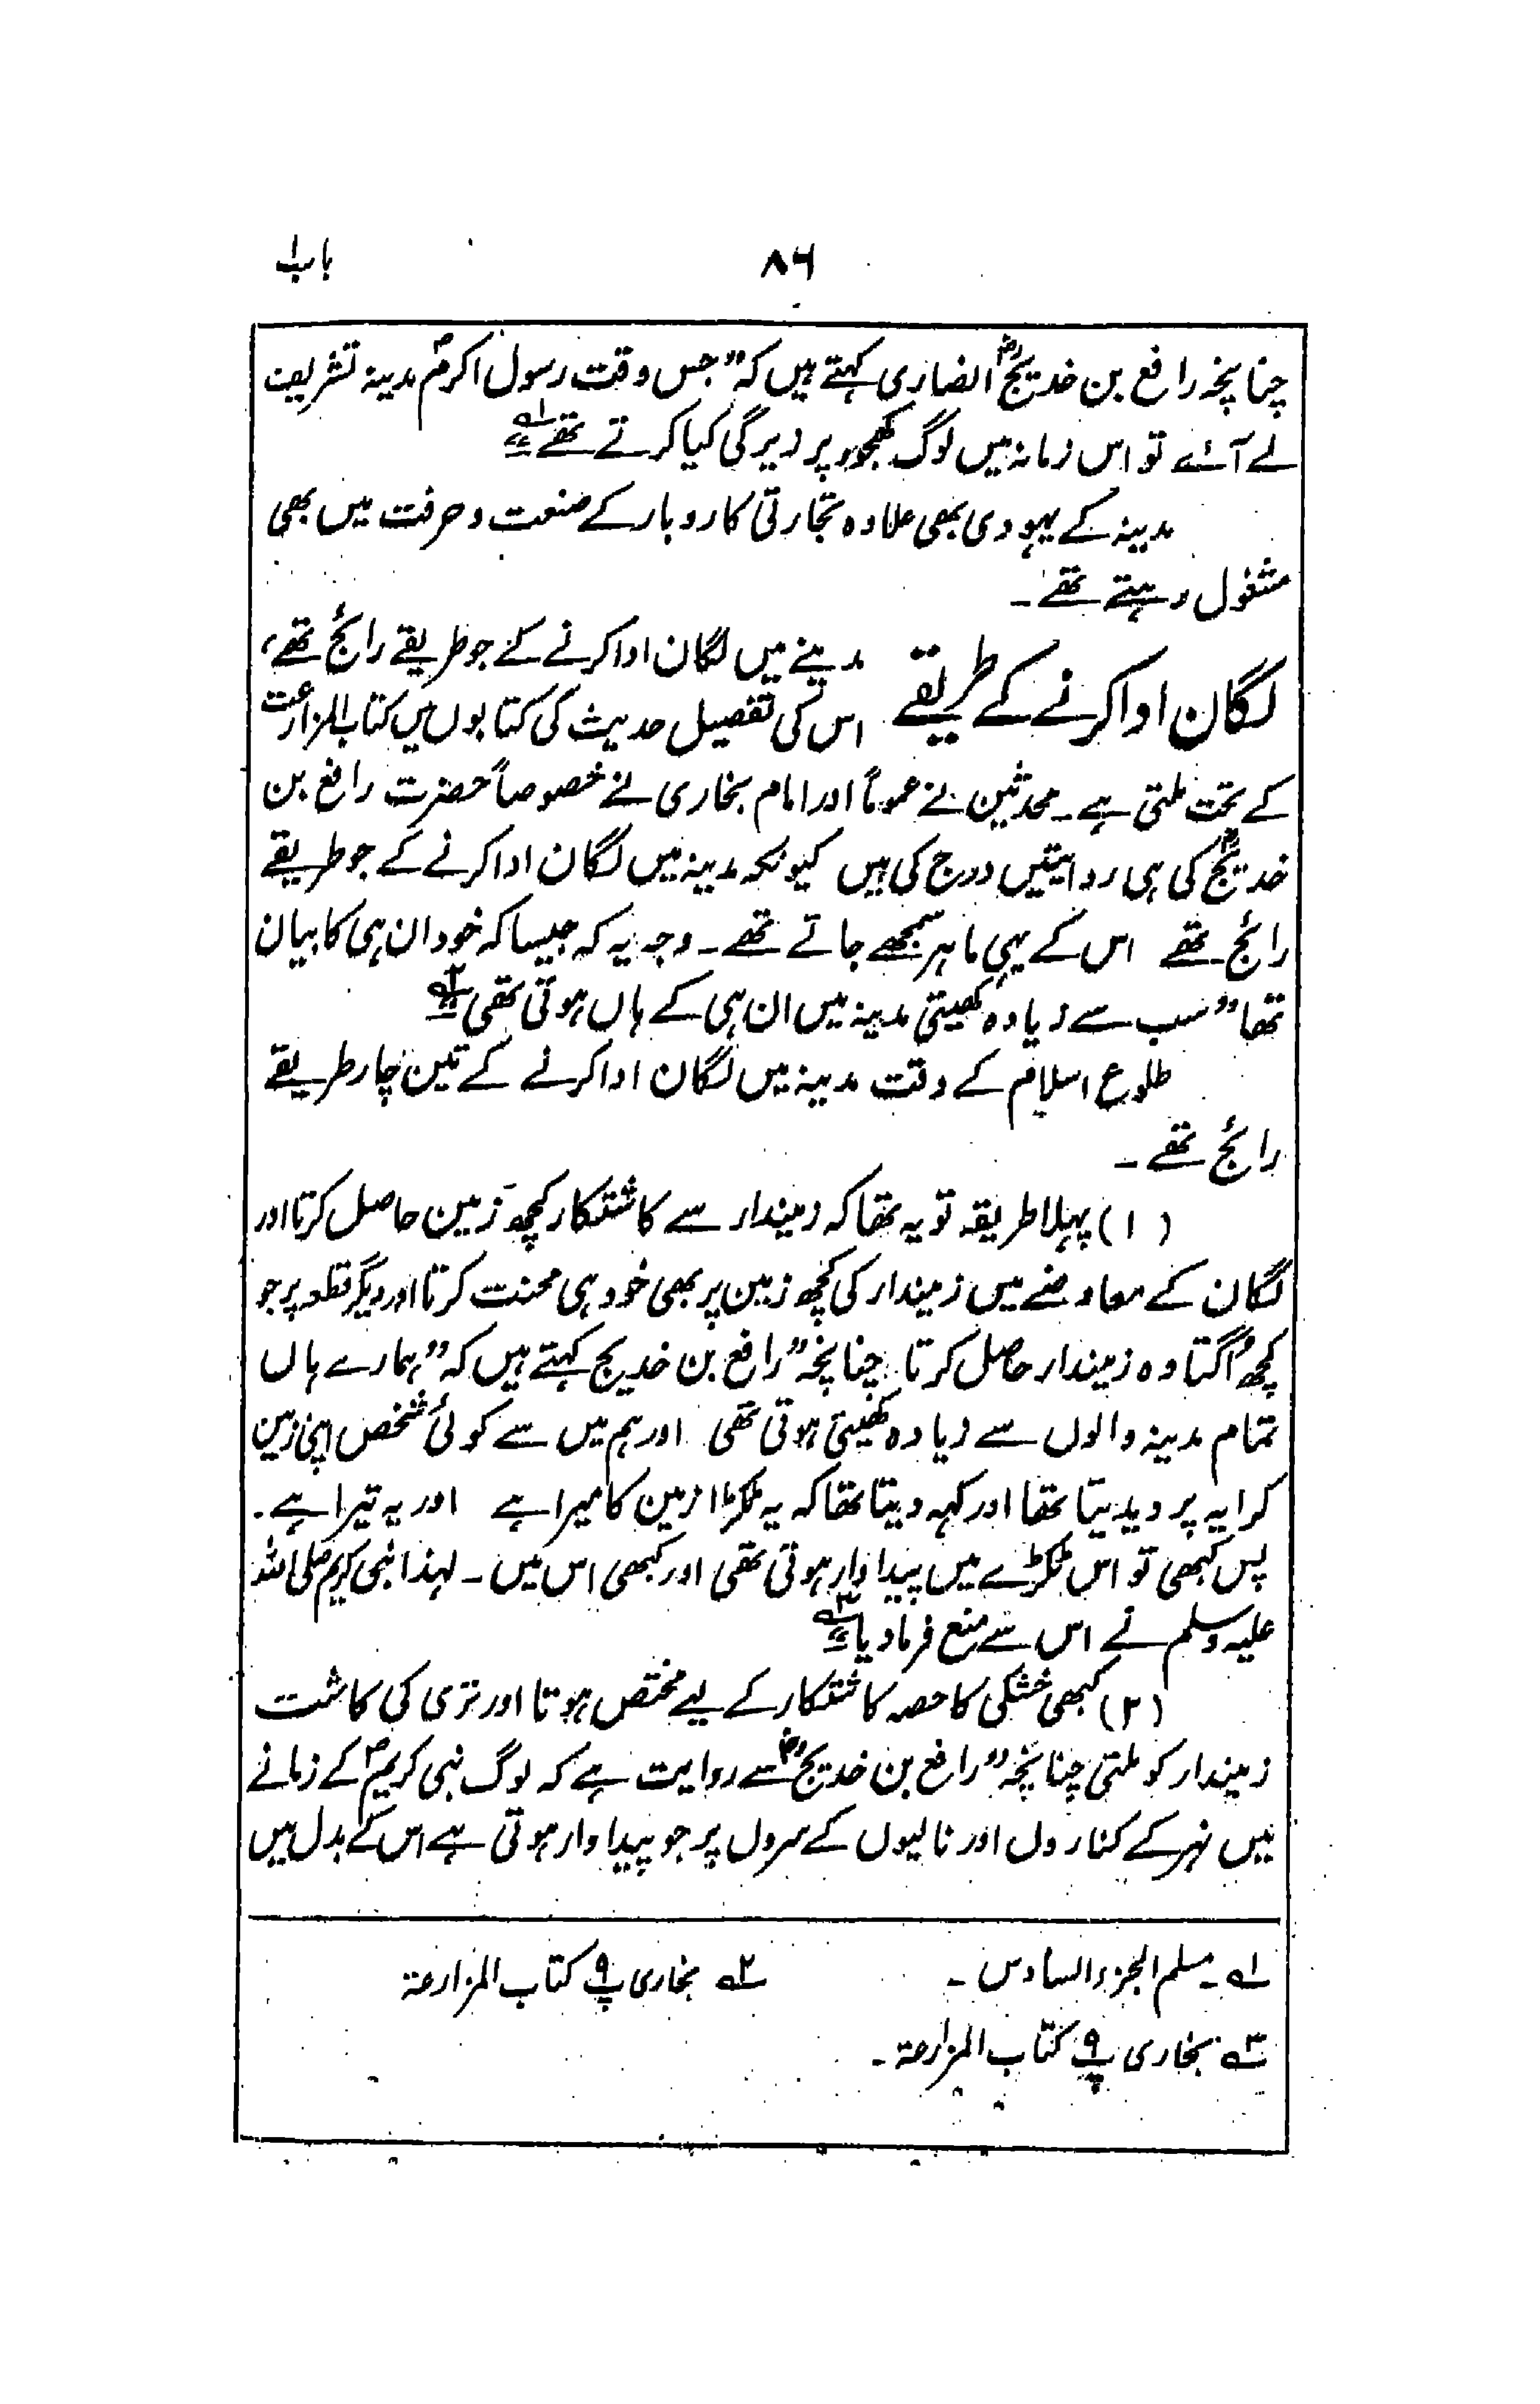 باب ۸۶
چنانچہ رافع بن خدیجؓ انصاری کہتے ہیں کہ ”جس وقت رسول اکرمؐ مدینہ تشریف
لے آئے تو اس زمانہ میں لوگ کھجور پر دیرگی کیا کرتے تھے ؎۱“
مدینہ کے یہودی بھی علاوہ تجارتی کاروبار کے صنعت و حرفت میں بھی
مشغول رہتے تھے ۔
لگان ادا کرنے کے طریقے مدینے میں لگان ادا کرنے کے جو طریقے رائج تھے،
اس کی تفصیل حدیث کی کتابوں میں کتاب المزارعت
کے تحت ملتی ہے ۔ محدثین نے عموماً اور امام بخاری نے خصوصاً حضرت رافع بن
خدیجؓ کی ہی روایتیں درج کی ہیں کیونکہ مدینہ میں لگان ادا کرنے کے جو طریقے
رائج تھے اس کے یہی ماہر سمجھے جاتے تھے ۔ وجہ یہ کہ جیسا کہ خود ان ہی کا بیان
تھا ”سب سے زیادہ کھیتی مدینہ میں ان ہی کے ہاں ہوتی تھی ؎۲“
طلوع اسلام کے وقت مدینہ میں لگان ادا کرنے کے تین چار طریقے
رائج تھے ۔
(۱) پہلا طریقہ تو یہ تھا کہ زمیندار سے کاشتکار کچھ زمین حاصل کرتا اور
لگان کے معاوضے میں زمیندار کی کچھ زمین پر بھی خود ہی محنت کرتا اور دیگر قطعہ پر جو
کچھ اُگتا وہ زمیندار حاصل کرتا چنانچہ ”رافع بن خدیج کہتے ہیں کہ ”ہمارے ہاں
تمام مدینہ والوں سے زیادہ کھیتی ہوتی تھی اور ہم میں سے کوئی شخص اپنی زمین
کرایہ پر دیدیتا تھا اور کہہ دیتا تھا کہ یہ ٹکڑا زمین کا میرا ہے اور یہ تیرا ہے ۔
پس کبھی تو اس ٹکڑے میں پیداوار ہوتی تھی اور کبھی اس میں ۔ لہذا نبی کریم صلی اللہ
علیہ وسلم نے اس سے منع فرمادیا ؎۳“
(۲) کبھی خشکی کا حصہ کاشتکار کے لیے مختص ہوتا اور تری کی کاشت
زمیندار کو ملتی چنانچہ ”رافع بن خدیجؓ سے روایت ہے کہ لوگ نبی کریمؐ کے زمانے
میں نہر کے کناروں اور نالیوں کے سروں پر جو پیداوار ہوتی ہے اس کے بدل میں
؎۱ ۔ مسلم الجزء السادس ۔ ؎۲ بخاری پ۹ کتاب المزارعۃ
؎۳ بخاری پ۹ کتاب المزارعۃ ۔